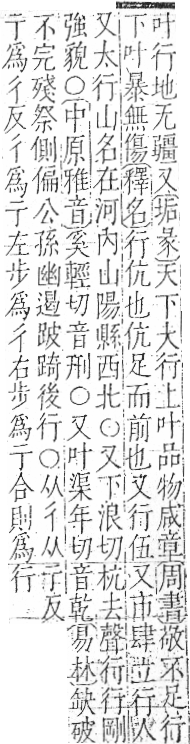 叶行地无疆又垢彖天下大行上叶品物咸章周書敬不足行
下叶暴無傷釋名行伉也伉足而前也又行伍又市肆立行火
又太行山名在河內山陽縣西北○又下浪切杭去聲行行剛
強貌○中原雅音奚輕切音刑○又叶渠年切音乾易林缺破
不完殘祭側偏公孫幽遏跛踦後行○从彳从亍反
亍爲彳反彳爲亍左步爲彳右步爲亍合則爲行